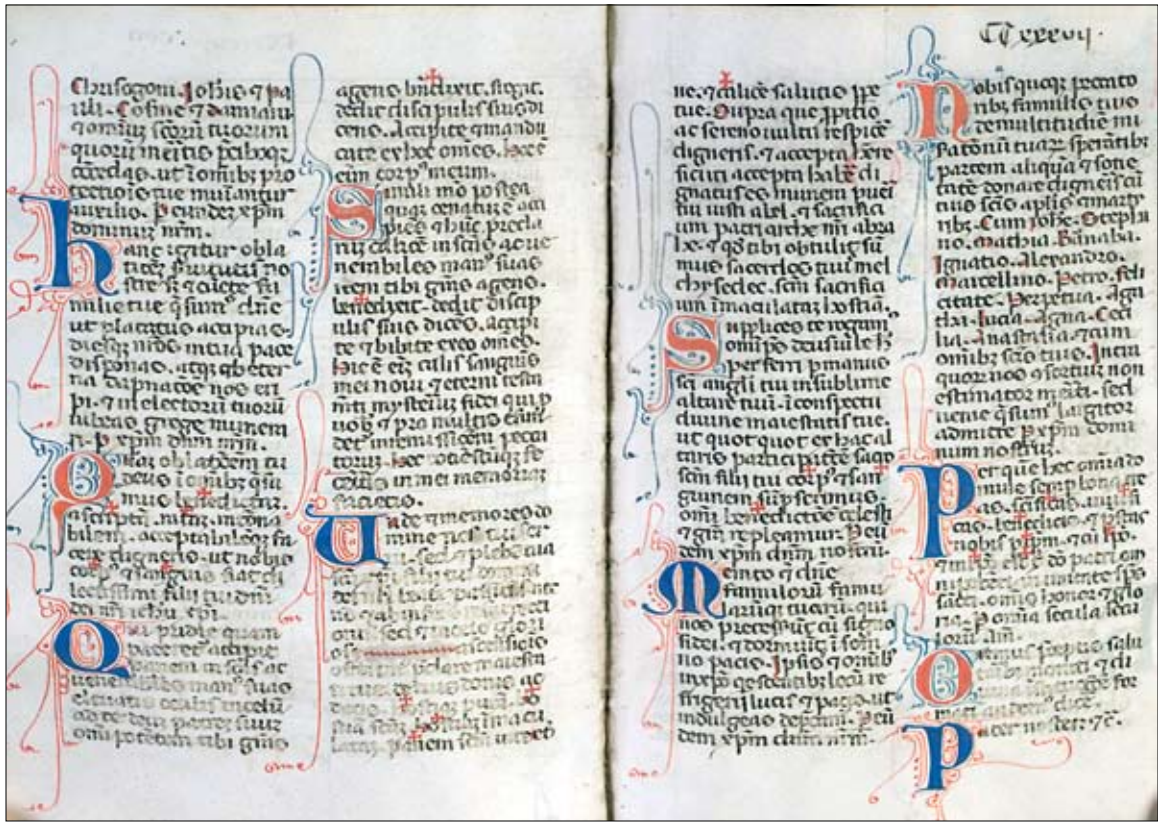 Chrisogoni. Ioh̄is ⁊ pa
uli. Cosme ⁊ damiani
⁊ omniuz scōrū tuorum
quoruz meritis p̄cibꝰqꝫ
cōcedas. ut ī omībꝰ pro
tectiōis tue muniamur
auxilio. P eundez xp̄m
dominuz nr̄m.
Hanc igitur obla
tiōez seruitutis no
stre sꝫ ⁊ cūcte fa
milie tue q̄sumꝰ dn̄e
ut placatus accipias.
diesqꝫ nr̄os in tua pace
disponas. atqꝫ ab eter
na dāpnatiōe nos eri
pi. ⁊ in electorū tuorū
iubeas grege numera
ri. P xp̄m dn̄m nr̄m.
Quaz oblatōem tu
deus ī omībꝰ q̄su
mus benedictaz.
ascriptā. ratā. rationa
bilem. acceptabilemqꝫ fa
cere digneris. ut nobis
corpꝰ ⁊ sanguis fiat di
lectissimi filii tui dn̄i
dei nr̄i iehu xp̄i.
Qui pridie quam
pateretᷣ. accepit
panem in sc̄as ac
uenerabiles manꝰ suas
eleuatis oculis in celū
ad te deū patrez suum
om̄ipotētem tibi grās
agens bn̄dixit. fregit.
dedit discipulis suis di
cens. Accipite ⁊ mandu
cate ex hoc om̄es. Hoc ē
enī corpꝰ meum.
Simili mō postea
quaz cenatuz ē acci
piens ⁊ hūc precla
rū calicē in sc̄as ac ue
nerabiles manꝰ suas
item tibi grās agens.
benedixit. dedit discip
ulis suis dicēs. accipi
te ⁊ bibite ex eo om̄es.
Hic ē eī calix sanguis
mei noui ⁊ eterni testa
mēti mysteriuz fidei qui p
uob̄ ⁊ pro multis effun
det̄ in remissiōem pecca
torum. Hec quotiēscūqꝫ fe
ceritis in mei memoriaz
facietis.
Unde ⁊ memores do
mine nos tui ser
ui. sed ⁊ plebs tua
sc̄a
filii tui
beate passiōis
nō ⁊ ab inferis resurrecti
onis. sed ⁊ in celos glori
ose ascensiōis
offerimꝰ preclare maiesta
ti tue de tuis donis ac
datis. hostiaz purā. ho
stiā sc̄am. hostiaz īmacu
lataz. panem sc̄m uite et
CCxxxvij.
ne. ⁊ calicē salutis ppe
tue. Supra que ppitio
ac sereno uultu respice
digneris. ⁊ accepta h̄ere
sicuti accepta hab̄e di
gnatus es munera pueri
tui iusti abel. ⁊ sacrifici
um patriarche nr̄i abra
he. ⁊ qd̄ tibi obtulit sū
mus sacerdos tuus mel
chysedec. sc̄m sacrifici
um īmaculataz hostiā.
Supplices te rogamꝰ
om̄ps deus iube h̄
perferri p manus
sc̄i angeli tui in sublime
altare tuū. ī conspectu
diuine maiestatis tue.
ut quotquot ex hac al
taris participatiōe sacro
sc̄m filii tui corpꝰ ⁊ san
guinem sūpserimus.
omī benedictiōe celesti
⁊ grā repleamur. P eū
dem xp̄m dn̄m nostrū.
Memēto ⁊ dn̄e
famulorū famu
larūqꝫ tuarū. qui
nos precesserūt cū signo
fidei. ⁊ dormiūt ī som
no pacis. Ipsis ⁊ omībꝰ
in xp̄o q̄escētibꝰ locū re
frigerii lucis ⁊ pacis. ut
indulgeas dep̄cam̄. P eū
dem xp̄m dn̄m nr̄m.
Nobis quoqꝫ peccato
ribꝫ famulis tuis
de multitudine mi
sationū tuarꝫ sperātibꝫ
partem aliquā ⁊ socie
tatē donare digneris cū
tuis sc̄is aplīs ⁊ marty
ribꝫ. Cum Ioh̄e. Stepha
no. Mathia. Barnaba.
Ignatio. Alexandro.
Marcellino. Petro. Feli
citate. Perpetua. Aga
tha. Lucia. Agna. Ceci
lia. Anastasia. ⁊ cum
omībꝫ sc̄is tuis. Intra
quorꝫ nos ⁊sortiuꝫ non
estimator meriti. sed
uenie q̄sumꝰ largitor
admitte. P xp̄m domi
num nostrum.
Per que hec om̄ia do
mine semp bona cre
as. sc̄ificas. uiuifi
cas. benedicis ⁊ prestas
nobis. P ipm. ⁊ cū ip̄o.
⁊ in ip̄o est t̄ dō patri om̄
nipotenti in unitate spū
sancti. omīs honor ⁊ glo
ria. P om̄ia secula secu
lorū am̄.
Oremus. Preceptis salu
taribꝰ moniti ⁊ di
uina institutiōe for
mati audemꝰ dicē.
Pater noster. ⁊c̄.